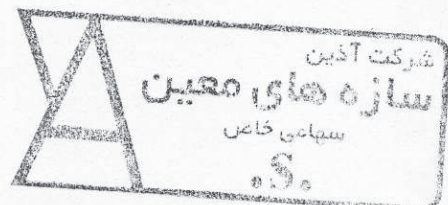 شرکت آذین
سازه های معین
سهامی خاص
.S.